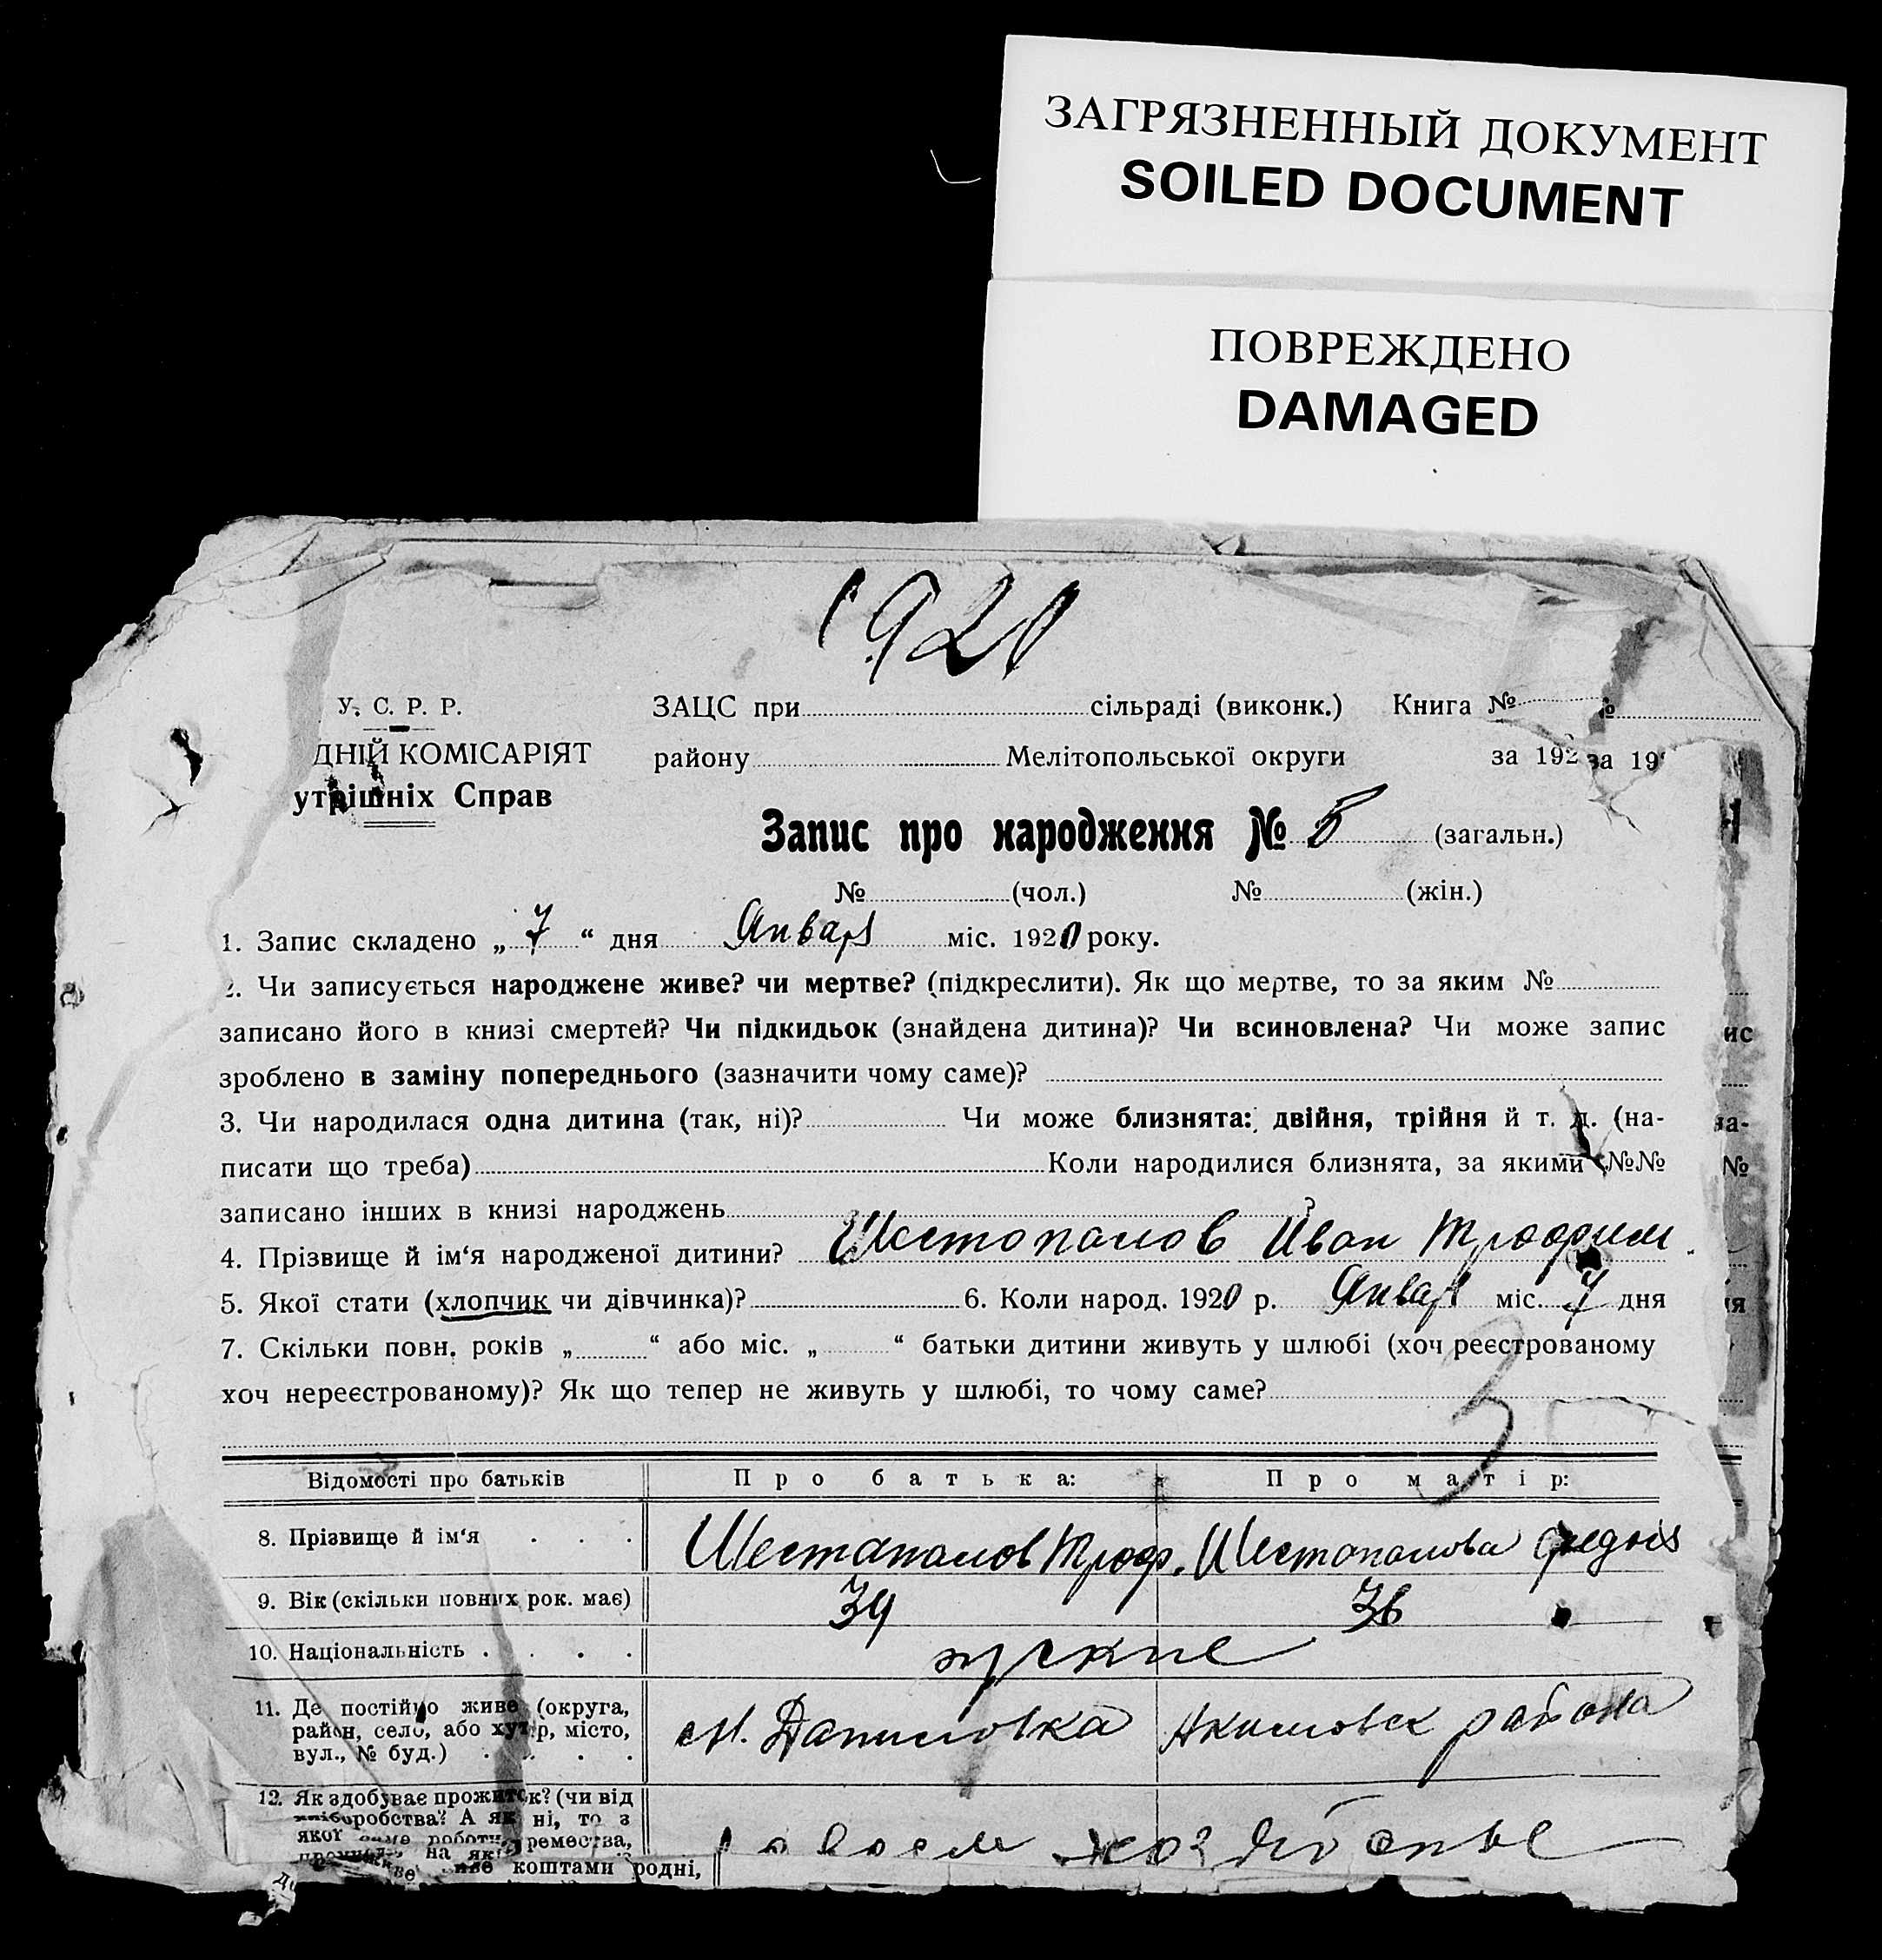 ЗАГРЯЗНЕННЫЙ ДОКУМЕНТ
SOILED DOCUMENT
ПОВРЕЖДЕНО
DAMAGED
1920
У. С. Р. Р.
ДНІЙ КОМІСАРІЯТ
утрішніх Справ
ЗАЦС при сільраді (виконк.) Книга №
району Мелітопольської округи за 192 за 19
Запис про народження № 5 (загальн.)
№ (чол.) № (жін.)
1. Запис складено „ 7 “ дня Январ міс. 1920 року.
2. Чи записується народжене живе? чи мертве? (підкреслити). Як що мертве, то за яким №
записано його в книзі смертей? Чи підкидьок (знайдена дитина)? Чи всиновлена? Чи може запис
зроблено в заміну попереднього (зазначити чому саме)?
3. Чи народилася одна дитина (так, ні)? Чи може близнята: двійня, трійня й т. д. (на-
писати що треба) Коли народилися близнята, за якими №№
записано інших в книзі народжень ?
4. Прізвище й ім‘я народженої дитини? Шестопалов Иван Трофим.
5. Якої стати (хлопчик чи дівчинка)? 6. Коли народ. 1920 р. Январ міс. 7 дня
7. Скільки повн. років „ “ або міс. „ “ батьки дитини живуть у шлюбі (хоч реєстрованому
хоч нереєстрованому)? Як що тепер не живуть у шлюбі, то чому саме?
3
Відомості про батьків Про батька: Про матір:
8. Прізвище й ім‘я . . . Шестапалов Троф. Шестопалова Федос
9. Вік (скільки повних рок. має) 39 36
10. Національність . . . . руские
11. Де постійно живе (округа,
район, село, або хутір, місто,
вул., № буд.) . . . .
М. Даниловка Акимовск района
12. Як здобуває прожиток? (чи від
хліборобства? А як ні, то з
якої саме роботи, ремества,
на як
коштами родні,